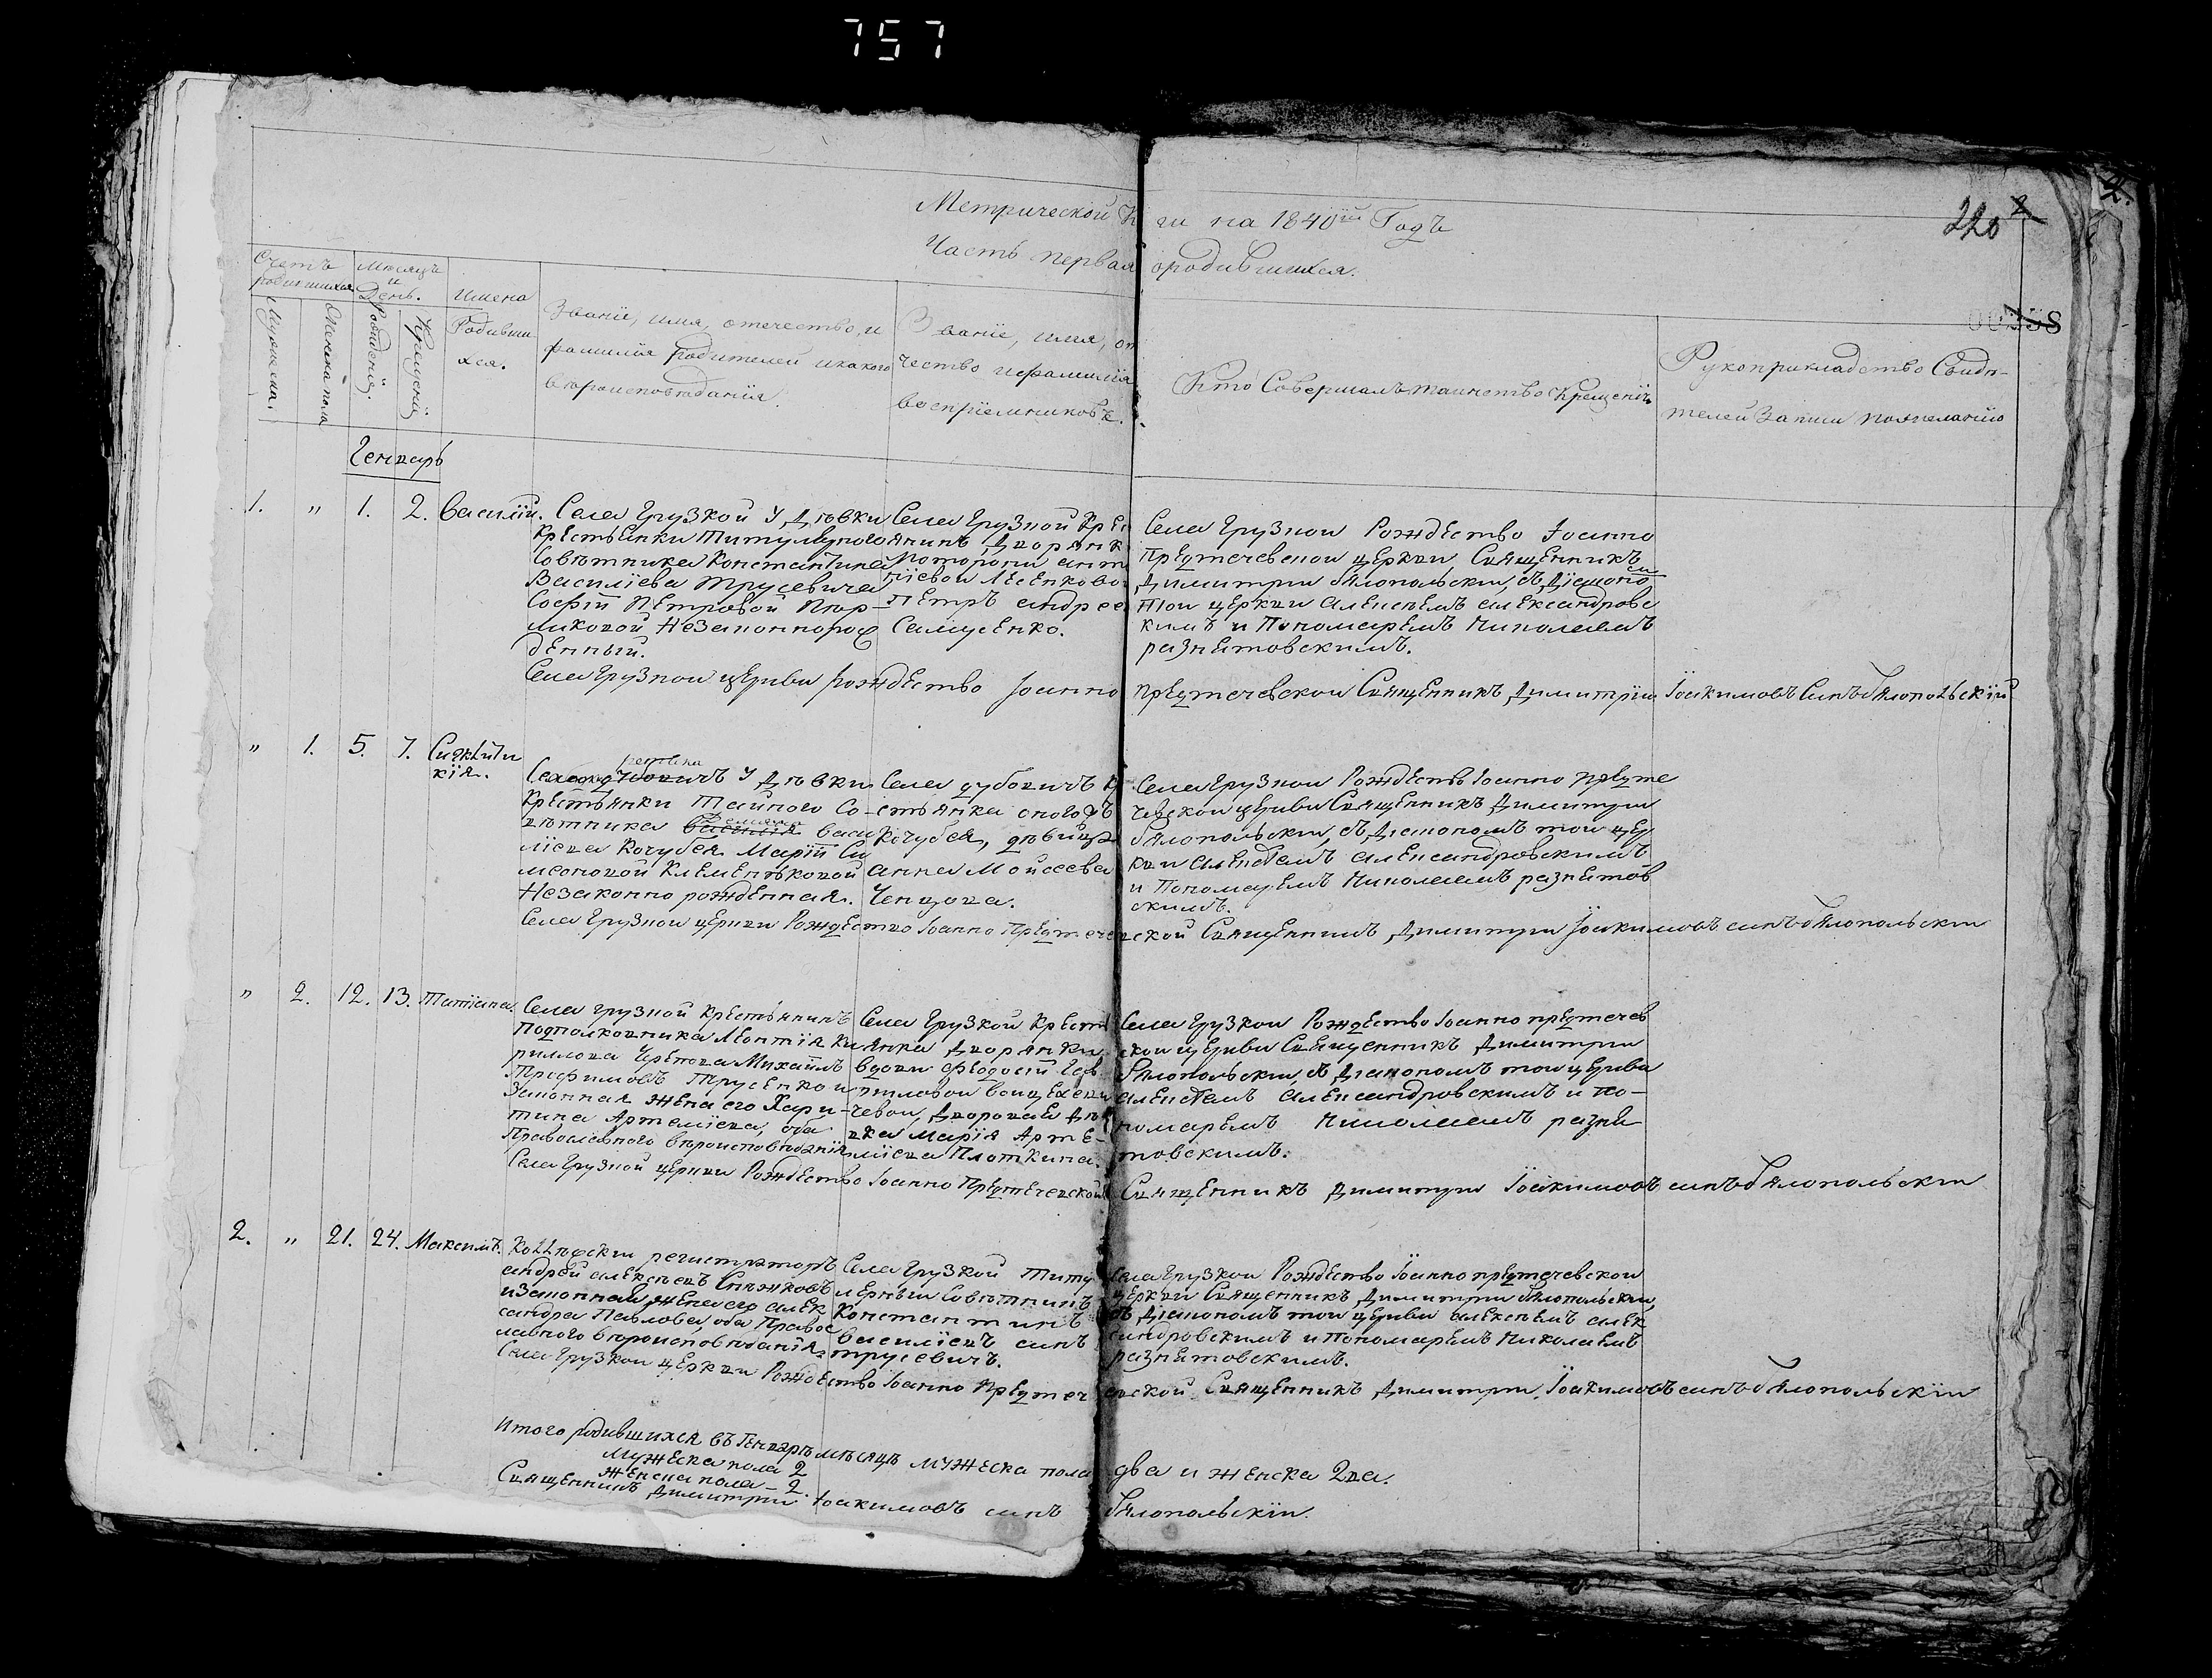 757
Метрической Кни ги на 1840ій Годъ
Часть первая ородившихся.
220
2
2.
00358
Счетъ родившихся
Мужеска.
Женска пола
Мѣсяцъ и День.
Рожденія.
Крещенія
имена
Родивши
хся.
Званіе, имя, отечество, и
фамилія родителей икакого
вѣроисповѣданія.
Званіе, имя, от
чество ифамилія
воспріемниковъ.
Кто Совершалъ таинство Крещенія
Рукоприкладство Свидѣ-
телей Записи пожеланію
Генварь
1. " 1. 2. Василій.
Села Грузкой У Дѣвки
Крестьянки Титулярного
Совѣтника Константина
Василіева Трусевича
Софіи Петровой
Незаконнорож
денный.
Села Грузкой Крес
янинъ Дворянк
Петръ андрее
Самусенко.
Села Грузкой Рождество Іоанно
Предтечевской церкви Священникъ
Димитрій Бялопольскій, съ Діаконо
той церкви Алексѣемъ александровс
кимъ и Пономаремъ Николаемъ
разнѣтовскимъ.
Села Грузкой церкви рождество Іоанно предтечевской Священникъ Димитрій Іоакимовъ Синъ Бялопольскій
" 1. 5. 7. Сигклити
кія.
У Дѣвки
Крестьянки Тайного Со-
вѣтника василія Васи
ліева Кочубея Маріи Си
меоновой Клеменѣковой
Незаконно рожденная.
Села дубовичъ Кр
стьянка оного
Кочубея, дѣвица
анна Моисеева
Ченцова.
Села Грузкой Рождество Іоанно предте
чевской церкви Священникъ Димитрій
бялопольскій, съ Діакономъ той цер
кви алексѣемъ александровскимъ
и Пономаремъ Николаемъ разнѣтов
скимъ.
Села Грузкой церкви Рождество Іоанно Предтечевской Священникъ Димитрій Іоакимовъ синъ бялопольскій
" 2. 12. 13. Татіана.
Села грузкой Крестьянинъ
Подполковника Леонтія Ки
рилова Михаилъ
Трофимовъ Трусенко и
Законная жена его Хари-
тина Артеміева, оба
Православного вѣроисповѣданія
Села Грузкой Крестъ
янка Дворянки
вдовы Феодосіи
Дворовая Дѣв
ка Марія Арте-
міева Плоткина.
Села Грузкой Рождество Іоанно предтечев
ской церкви Священникъ Димитрій
Бялопольскій, съ Діакономъ той церкви
алексѣемъ александровскимъ и по-
номаремъ Николаемъ разнѣ
товскимъ.
Села Грузкой церкви Рождество Іоанно Предтечевской Священникъ Димитрій Іоакимовъ синъ бялопольскій
2. " 21. 24. Максимъ.
регистраторъ
андрей алексѣевъ Снѣжковъ
и Законная жена его алек
сандра Павлова, оба Правос
лавного вѣроисповѣданія.
Села Грузкой Титу
лярный Совѣтникъ
Константинъ
василіевъ синъ
трусевичъ.
Села Грузкой Рождество Іоанно предтечевской
церкви Священникъ Димитрій бялопольскій,
съ Діакономъ той церкви алексѣемъ алек
сандровскимъ и Пономаремъ Николаемъ
разнѣтовскимъ.
Села Грузкой церкви Рождество Іоанно Предтечевской Священникъ Димитрій Іоакимовъ синъ бялопольскій
Итого родившихся въ Генварѣ мѣсяцѣ мужеска пола два и женска 2ва.
Мужеска пола 2
Женска пола - 2.
Священникъ Димитрій Іоакимовъ синъ Бялопольскій.